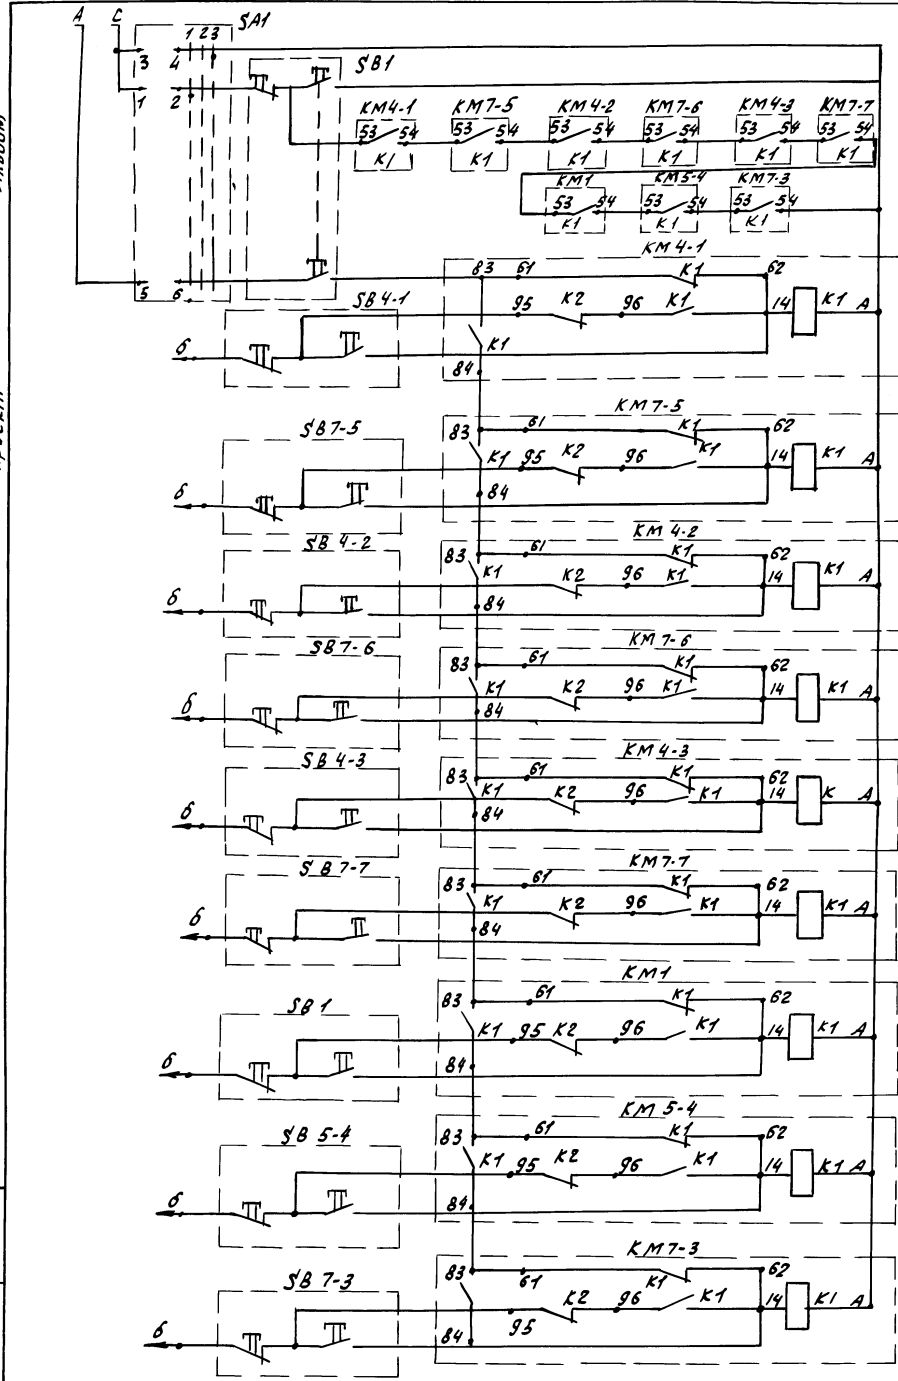 А С SA1
1 2 3
3 4
SB1
1 2
KM4-1 KM7-5 KM4-2 KM7-6 KM4-3 KM7-7
53 54 53 54 53 54 53 54 53 54 53 54
K1 K1 K1 K1 K1 K1
KM1 KM5-4 KM7-3
53 54 53 54 53 54
K1 K1 K1
KM4-1
5 6 83 61 K1 62
SB4-1 95 K2 96 K1 14 K1 A
б K1
84
KM7-5
SB7-5 83 61 K1 62
K1 95 K2 96 K1 14 K1 A
б 84
KM4-2
SB4-2 83 61 K1 62
K1 K2 96 K1 14 K1 A
б 84
KM7-6
SB7-6 83 61 K1 62
K1 K2 96 K1 14 K1 A
б 84
KM4-3
SB4-3 83 61 K1 62
K1 K2 96 K1 14 K A
б 84
KM7-7
SB7-7 83 61 K1 62
K1 K2 96 K1 14 K1 A
б 84
KM1
SB1 83 61 K1 62
K1 95 K2 96 K1 14 K1 A
б 84
KM5-4
SB5-4 83 61 K1 62
K1 95 K2 96 K1 14 K1 A
б 84
KM7-3
SB7-3 83 61 K1 62
95 K2 96 K1 14 K1 A
б 84